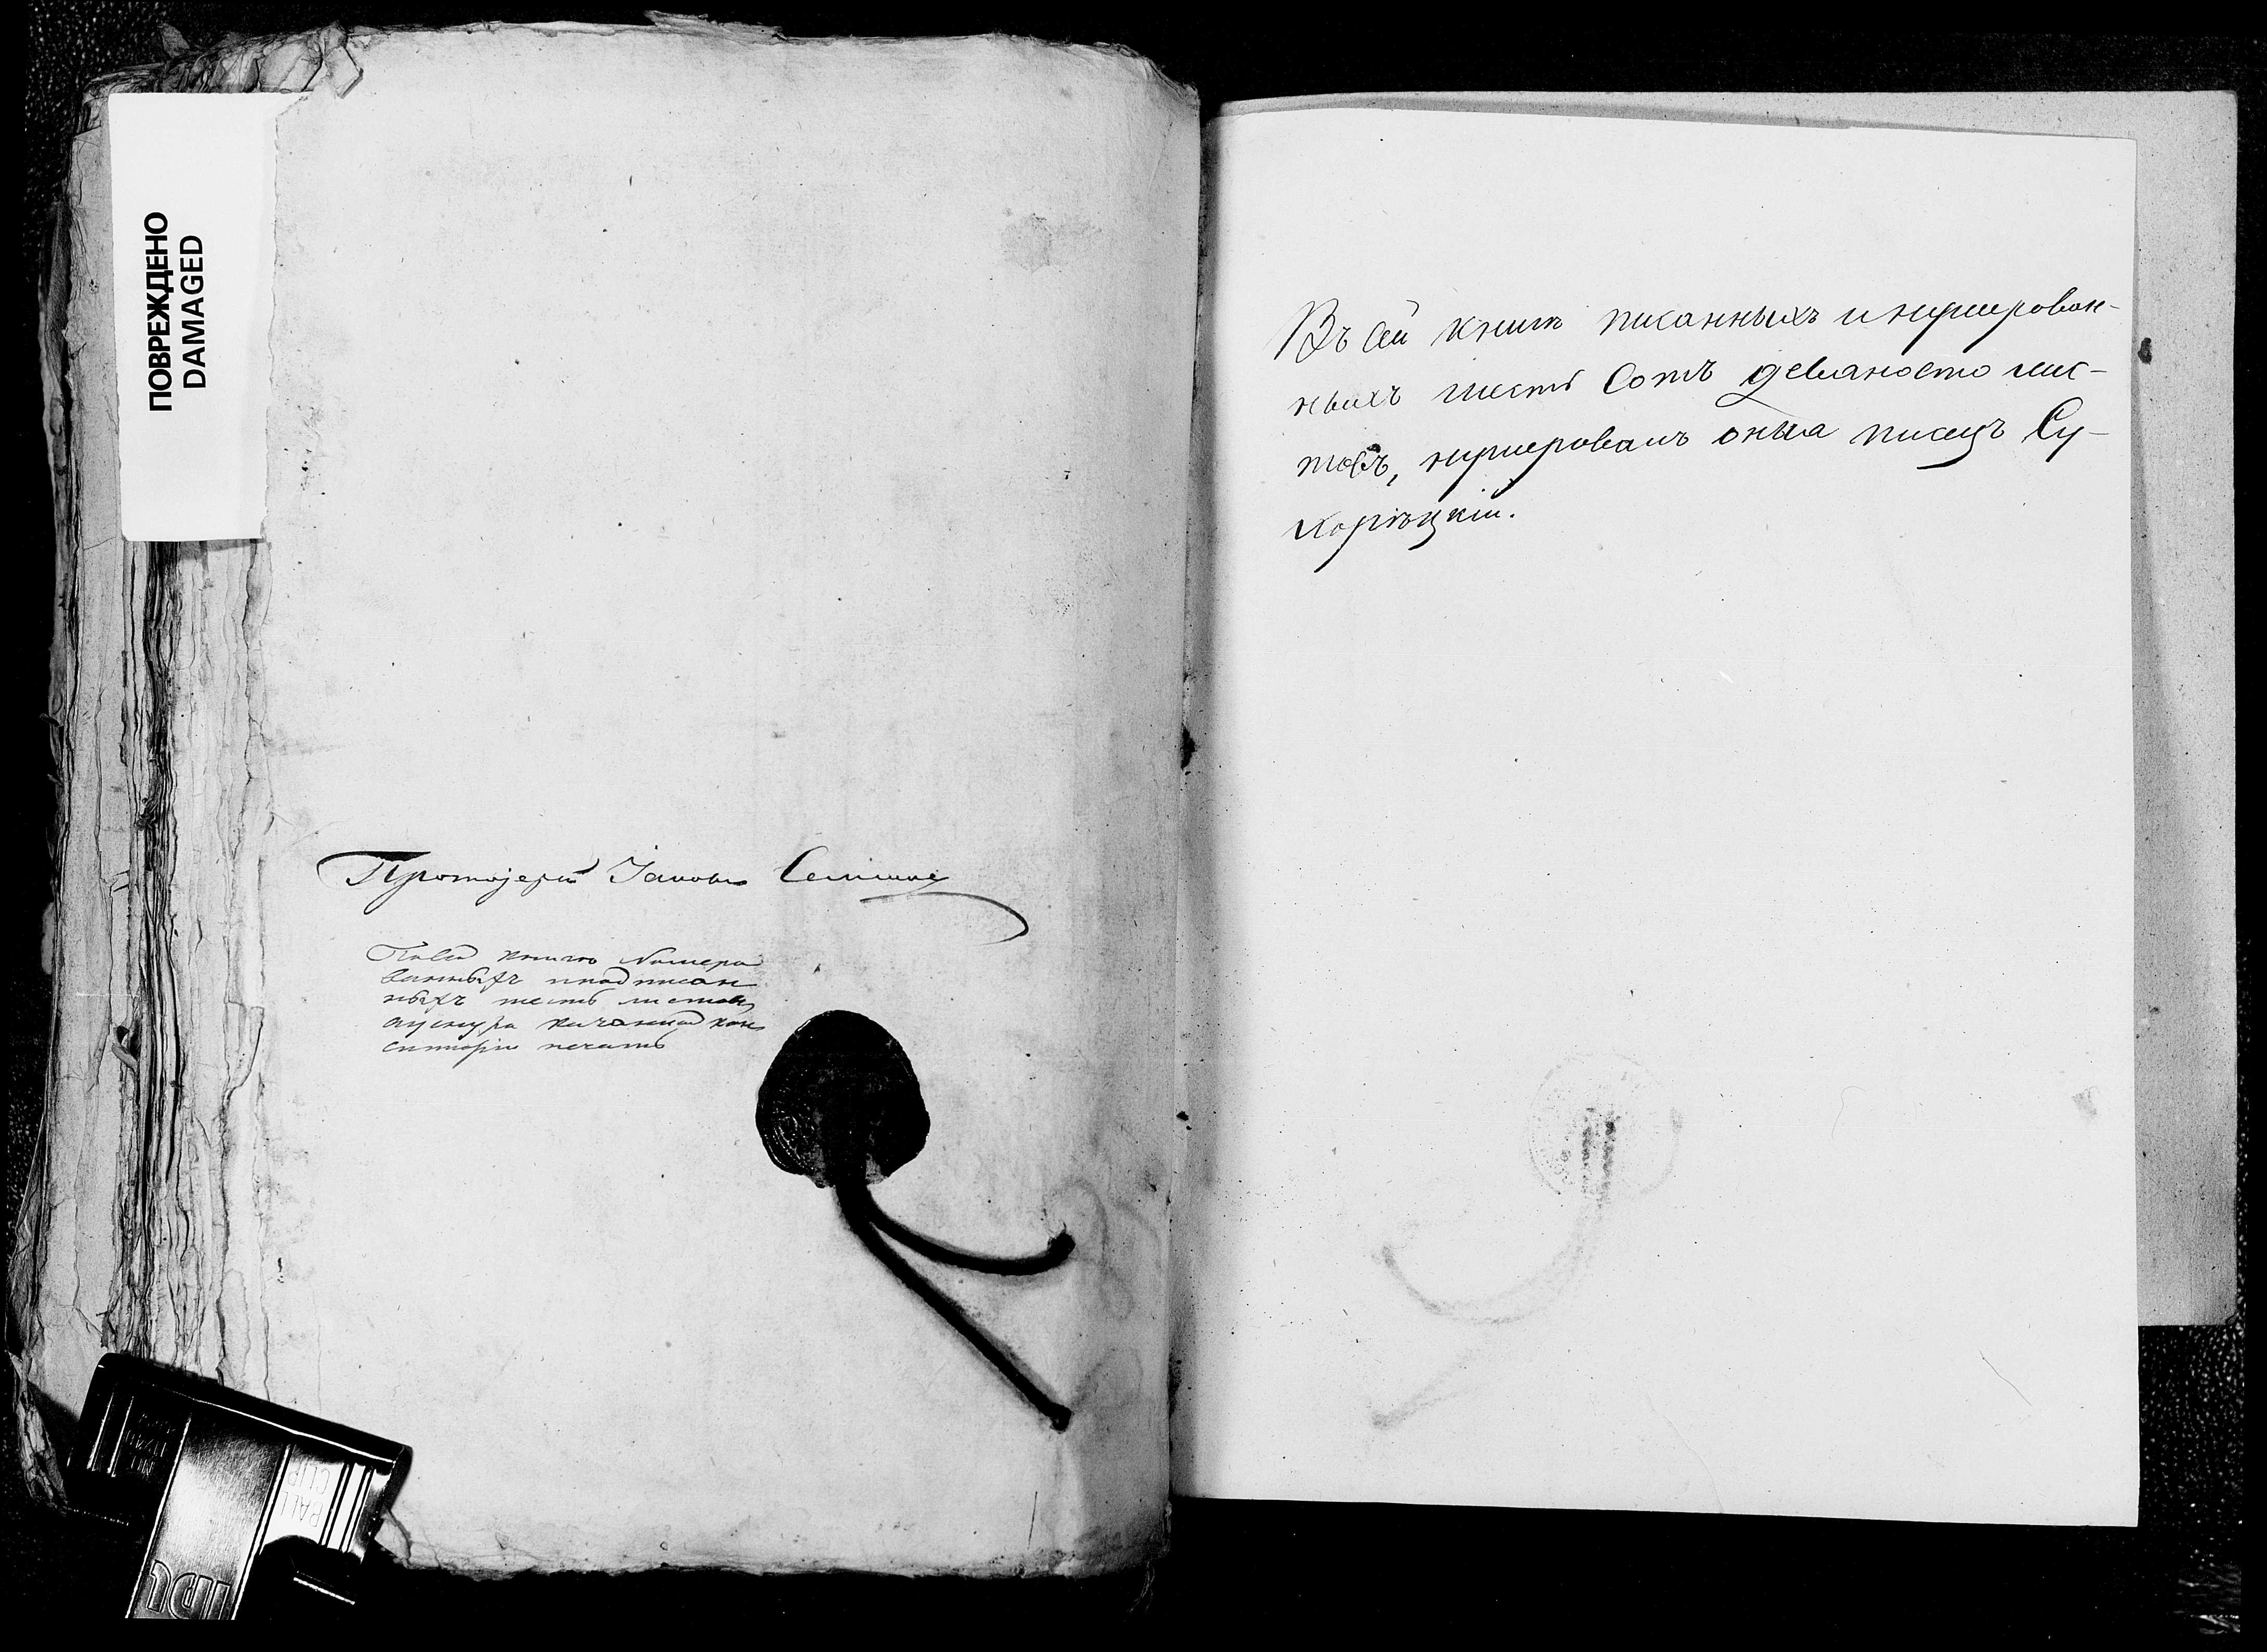 ПОВРЕЖДЕНО
DAMAGED
Протоjерей Iаковъ
Въ сей книгѣ номеро
ванныхъ подписан
ныхъ шесть листовъ
а у снура печать кон
систорiи печать
Въ сей книгѣ писанныхъ и нумерован-
ныхъ шесть сотъ девяносто лис-
товъ, нумеровалъ оныя писецъ Су-
хорѣцкiй.
PALI
CLIP